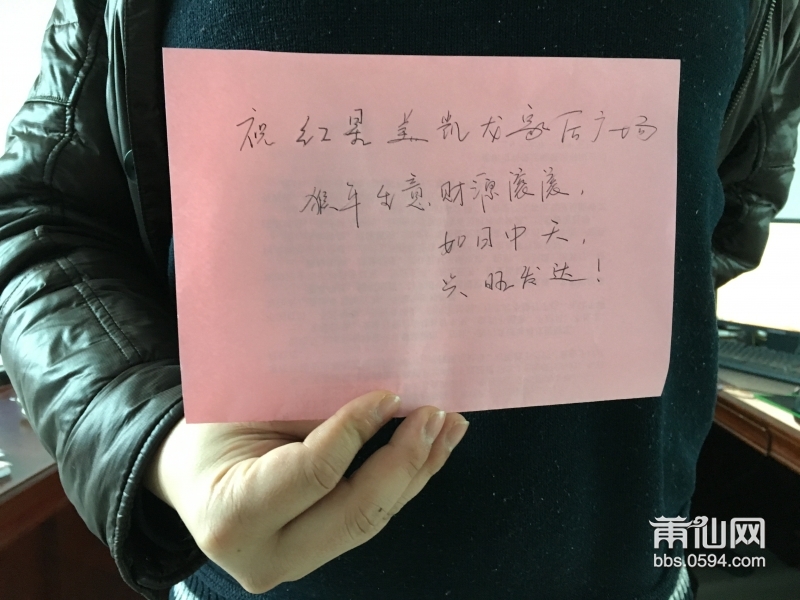 祝红星美凯龙家居广场
猴年生意财源滚滚，
如日中天，
兴旺发达！
莆仙网
bbs.0594.com